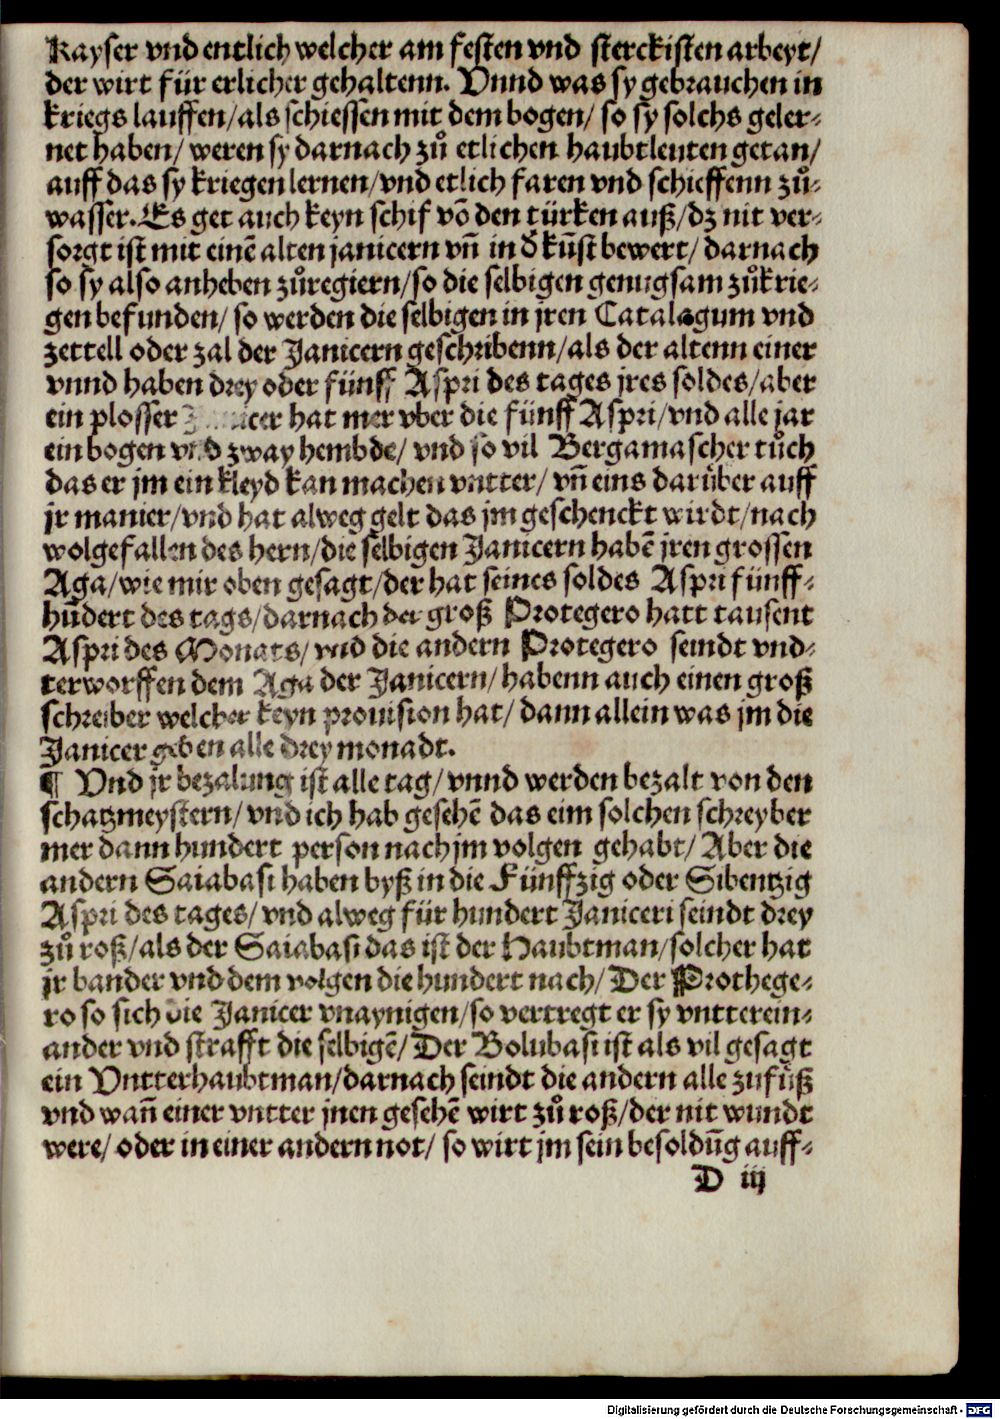 Kayser vnd entlich welcher am festen vnd sterckisten arbeyt/
der wirt für erlicher gehaltenn. Vnnd was sy gebrauchen in
kriegs lauffen/als schiessen mit dem bogen/ so sy solchs geler-
net haben/ weren sy darnach zů etlichen haubtleuten getan/
auff das sy kriegen lernen/vnd etlich faren vnd schieffenn zů-
wasser. Es get auch keyn schif võ den türken auß/dz nit ver-
sorgt ist mit einẽ alten janicern vñ in d̕ kũst bewert/ darnach
so sy also anheben zůregiern/so die selbigen genugsam zůkrie-
gen befunden/ so werden die selbigen in jren Catalagum vnd
zettell oder zal der Janicern geschribenn/als der altenn einer
vnnd haben drey oder fünff Aspri des tages jres soldes/aber
ein plosser Janicer hat mer vber die fünff Aspri/vnd alle jar
ein bogen vnd zway hembde/ vnd so vil Bergamascher tůch
das er jm ein kleyd kan machen vntter/ vñ eins darüber auff
jr manier/vnd hat alweg gelt das jm geschenckt wirdt/nach
wolgefallen des hern/die selbigen Janicern habẽ jren grossen
Aga/wie mir oben gesagt/der hat seines soldes Aspri fünff-
hũdert des tags/darnach der groß Protegero hatt tausent
Aspri des Monats/ vnd die andern Protegero seindt vnd-
terworffen dem Aga der Janicern/ habenn auch einen groß
schreiber welcher keyn prouision hat/ dann allein was jm die
Janicer geben alle drey monadt.
¶ Vnd jr bezalung ist alle tag/ vnnd werden bezalt von den
schatzmeystern/ vnd ich hab gesehẽ das eim solchen schreyber
mer dann hundert person nach jm volgen gehabt/ Aber die
andern Saiabasi haben byß in die Fünffzig oder Sibentzig
Aspri des tages/ vnd alweg für hundert Janiceri seindt drey
zů roß/als der Saiabasi das ist der Haubtman/solcher hat
jr bander vnd dem volgen die hundert nach/ Der Prothege-
ro so sich die Janicer vnaynigen/so vertregt er sy vntterein-
ander vnd strafft die selbigẽ/ Der Bolubasi ist als vil gesagt
ein Vntterhaubtman/darnach seindt die andern alle zufůß
vnd wañ einer vntter jnen gesehẽ wirt zů roß/der nit wundt
were/ oder in einer andern not/ so wirt jm sein besoldũg auff-
D iij
Digitalisierung gefördert durch die Deutsche Forschungsgemeinschaft - DFG